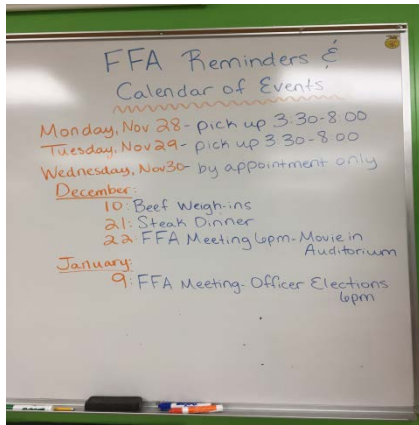 FFA Reminders &
Calendar of Events
Monday, Nov 28 - pick up 3:30-8:00
Tuesday, Nov 29 - pick up 3 30-8 00
Wednesday, Nov 30 - by appointment only
December:
10: Beef Weigh-ins
21: Steak Dinner
22: FFA Meeting 6pm - Movie in
Auditorium
January:
9: FFA Meeting - Officer Elections
6pm